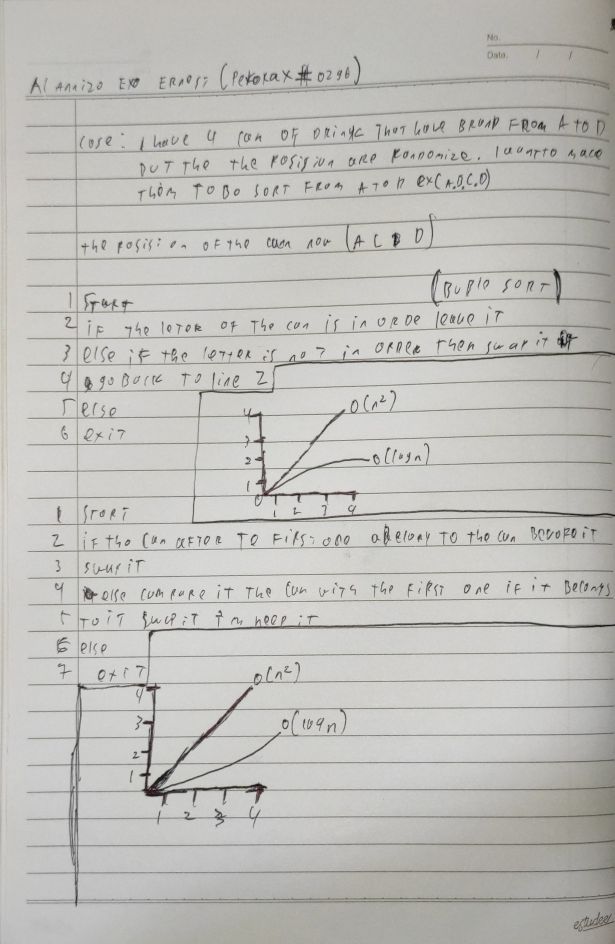 No.
Date. / /
Al Annizo EXO ERnos; (PeKoraX #0296)
Case: I have 4 can OF DRinks That have BRanD FROM A TO D
BUT the the Posision are Randomize. I want to mace
Them TO BO SORT FROM A TO D ex(A,B,C,D)
the posision of the can now (A C B D)
1 Start (BUBlO SORT)
2 if The leTer of The can is in ORDe leave it
3 else if the leTTer is noT in ORDer Then swap it
4 go Back To line 2
5 else
6 exiT
4 O(n²)
3
2 O(logn)
1
0 1 2 3 4
1 STORT
2 if tho Can AFTOR TO FiRST one Belong TO the can BeVoRe it
3 swap it
4 else compare it The Can with the FiRST one if it Belongs
5 To iT Swap iT keep it
6 else
7 exiT
4 O(n²)
3 O(logn)
2
1
1 2 3 4
estudee